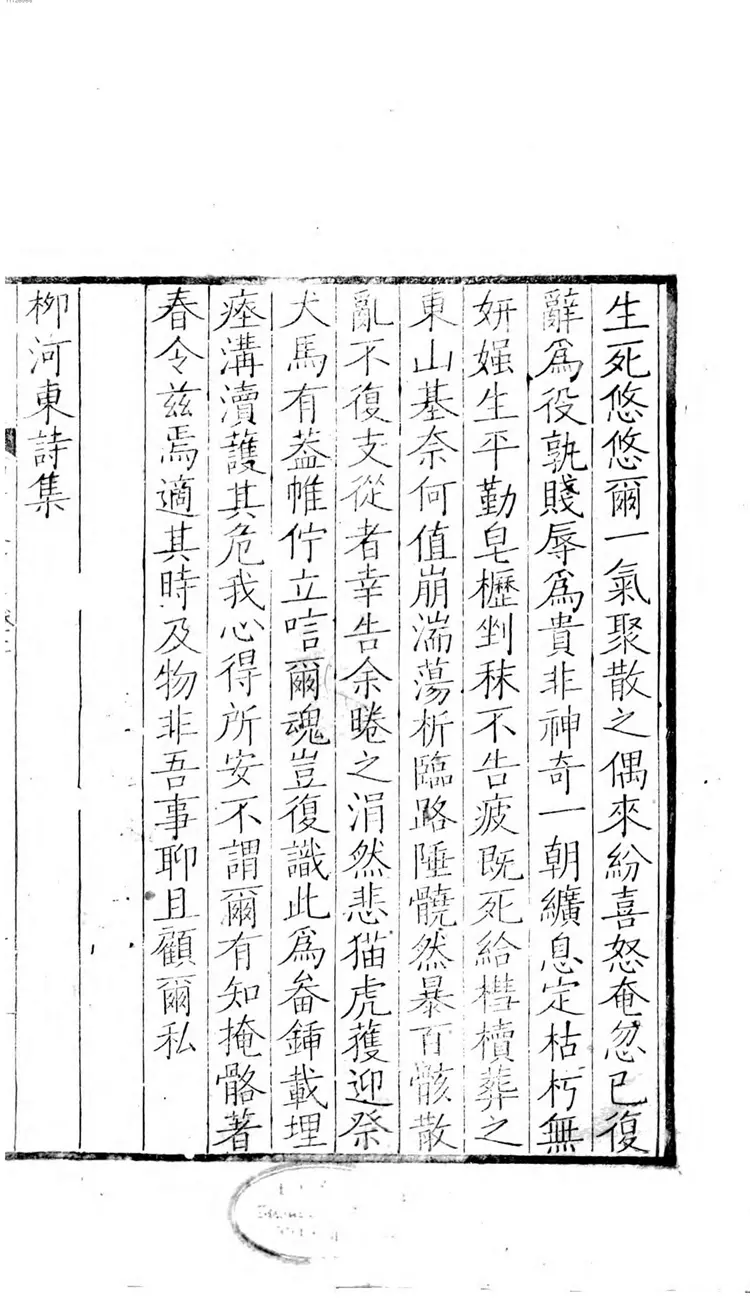 生死悠悠爾一氣聚散之偶來紛喜怒奄忽已復
辭爲役孰賤辱爲貴非神奇一朝纊息定枯朽無
妍媸生平勤皂櫪剉秣不告疲既死給槥櫝葬之
東山基奈何值崩湍蕩析臨路陲髐然暴百骸散
亂不復支從者幸告余睠之涓然悲猫虎獲迎祭
犬馬有蓋帷佇立唁爾魂豈復識此爲畚鍤載埋
瘞溝瀆護其危我心得所安不謂爾有知掩骼著
春令茲焉適其時及物非吾事聊且顧爾私
柳河東詩集